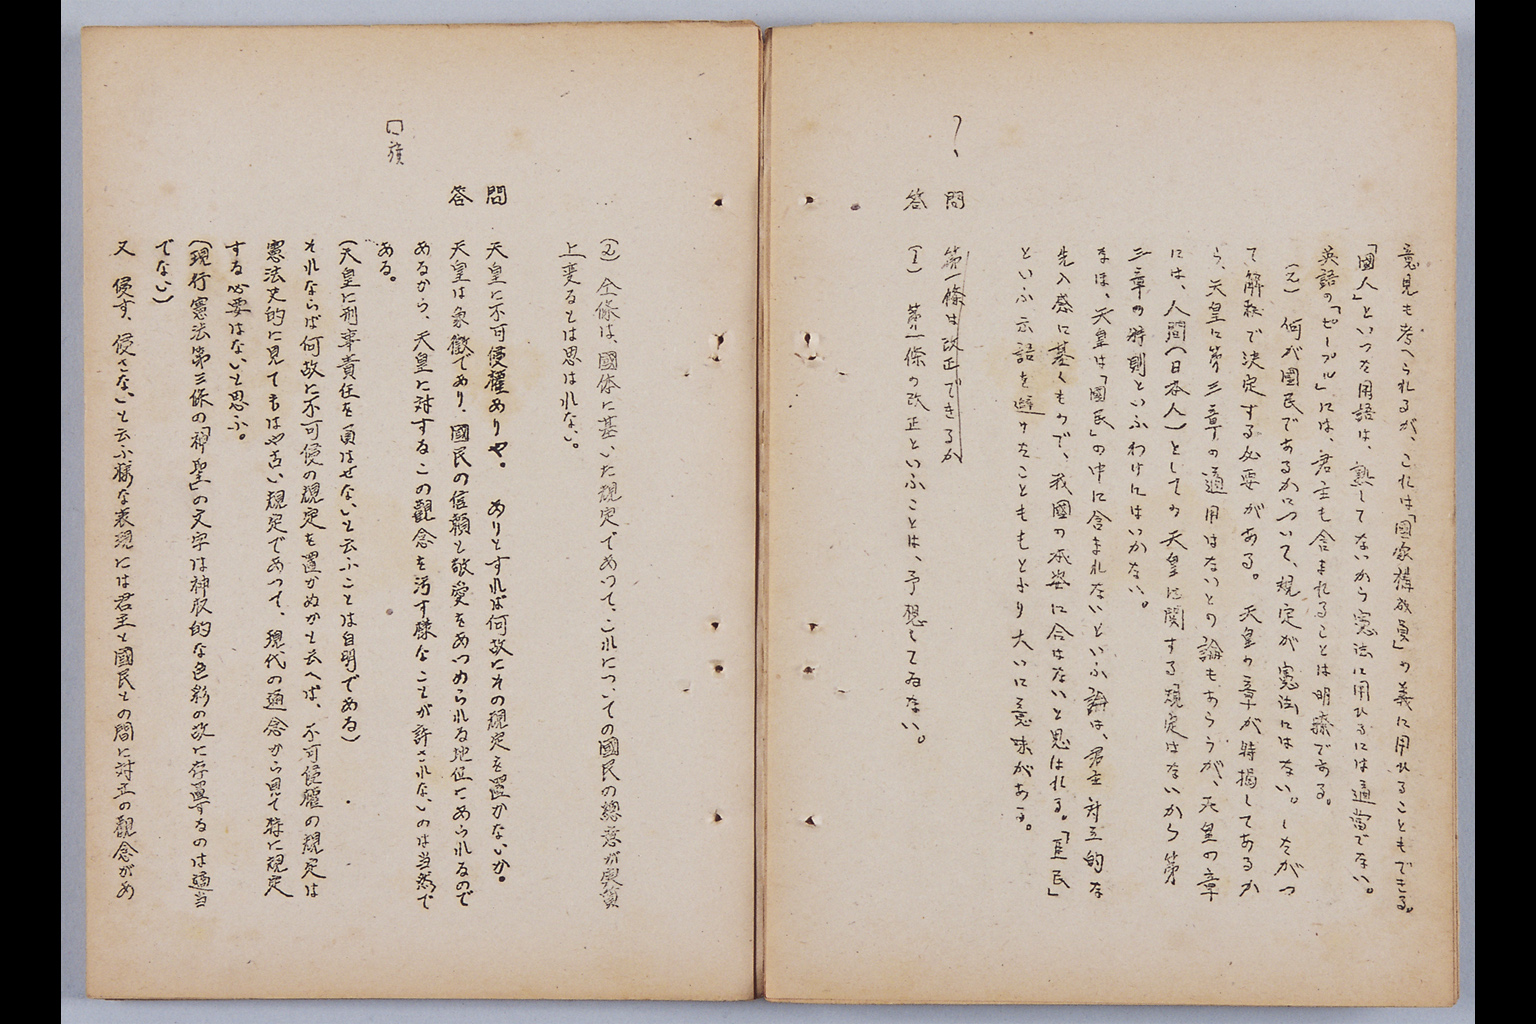 意見も考へられるが、これは「國家構成員」の義に用ひることもできる。
「國人」といつた用語は、熟してないから憲法に用ひるには適当でない。
英語の「ピープル」には、君主も含まれることは明瞭である。
(2) 何が國民であるかについて、規定が憲法にはない。したがつ
て解釈で決定する必要がある。天皇の章が特掲してあるか
ら、天皇に第三章の適用はないとの論もあらうが、天皇の章
には、人間(日本人)としての天皇に関する規定はないから第
三章の特則といふわけにはいかない。
なほ、天皇は「國民」の中に含まれないといふ論は、君主対立的な
先入感に基くもので、我國の
に合はないと思はれる。「臣民」
といふ言語を避けたことももとより大いに意味がある。
問 第一條は改正できるか
答 (1) 第一條の改正といふことは、予想してゐない。
(2) 全條は、國体に基いた規定であつて、これについての國民の總意が事實
上変るとは思はれない。
問 天皇に不可侵權ありや。ありとすれば何故にその規定を置かないか。
答 天皇は象徴であり、國民の信頼と敬愛をあつめられる地位にあられるので
あるから、天皇に対するこの觀念を汚す様なことが許されないのは当然で
ある。
(天皇に刑事責任を負はせないと云ふことは自明である)
それならば何故に不可侵の規定を置かぬかと云へば、不可侵權の規定は
憲法史的に見てもはや古い規定であつて、現代の通念から見て特に規定
する必要はないと思ふ。
(現行憲法第三條の「神聖」の文字は神
的な色彩の故に存置するのは適当
でない)
又 侵す、侵さないと云ふ様な表現には君主と國民との間に対立の觀念があ